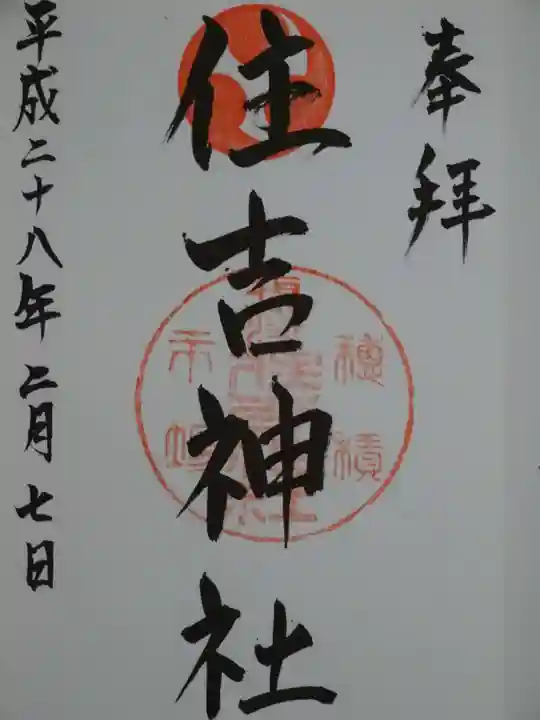 奉拝
住吉神社
平成二十八年二月七日
穂積